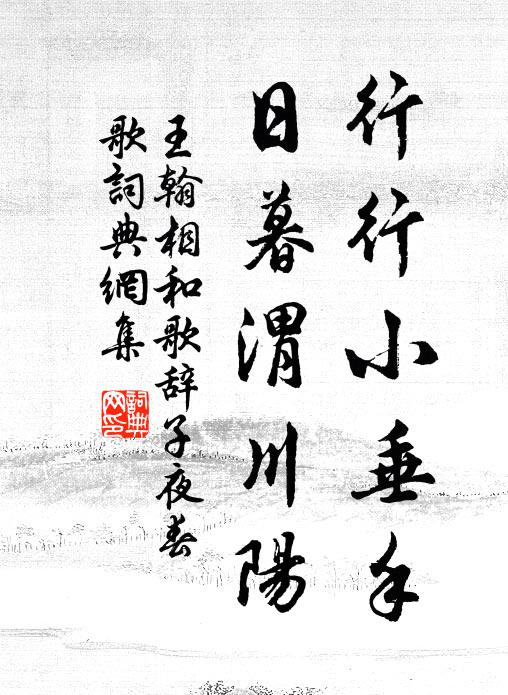 行行小垂手
日暮渭川陽
王翰相和歌辞子夜春
歌詞典網集
詞典
网印